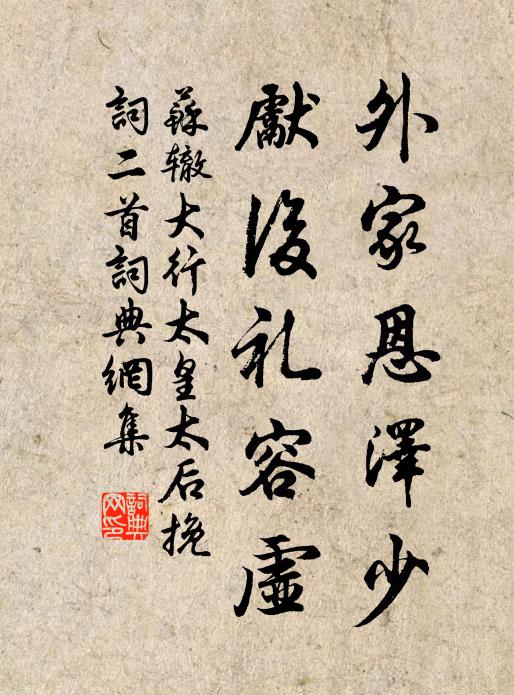 外家恩澤少
獻後礼容虛
蘇辙大行太皇太后挽
詞二首詞典網集
詞典
网印